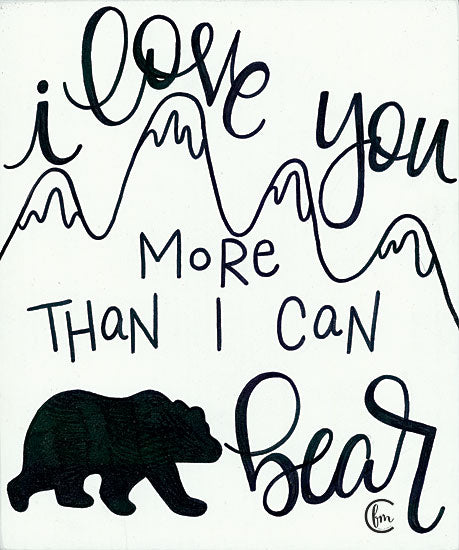 i love you
MoRe
THaN I CaN
bear
fbm